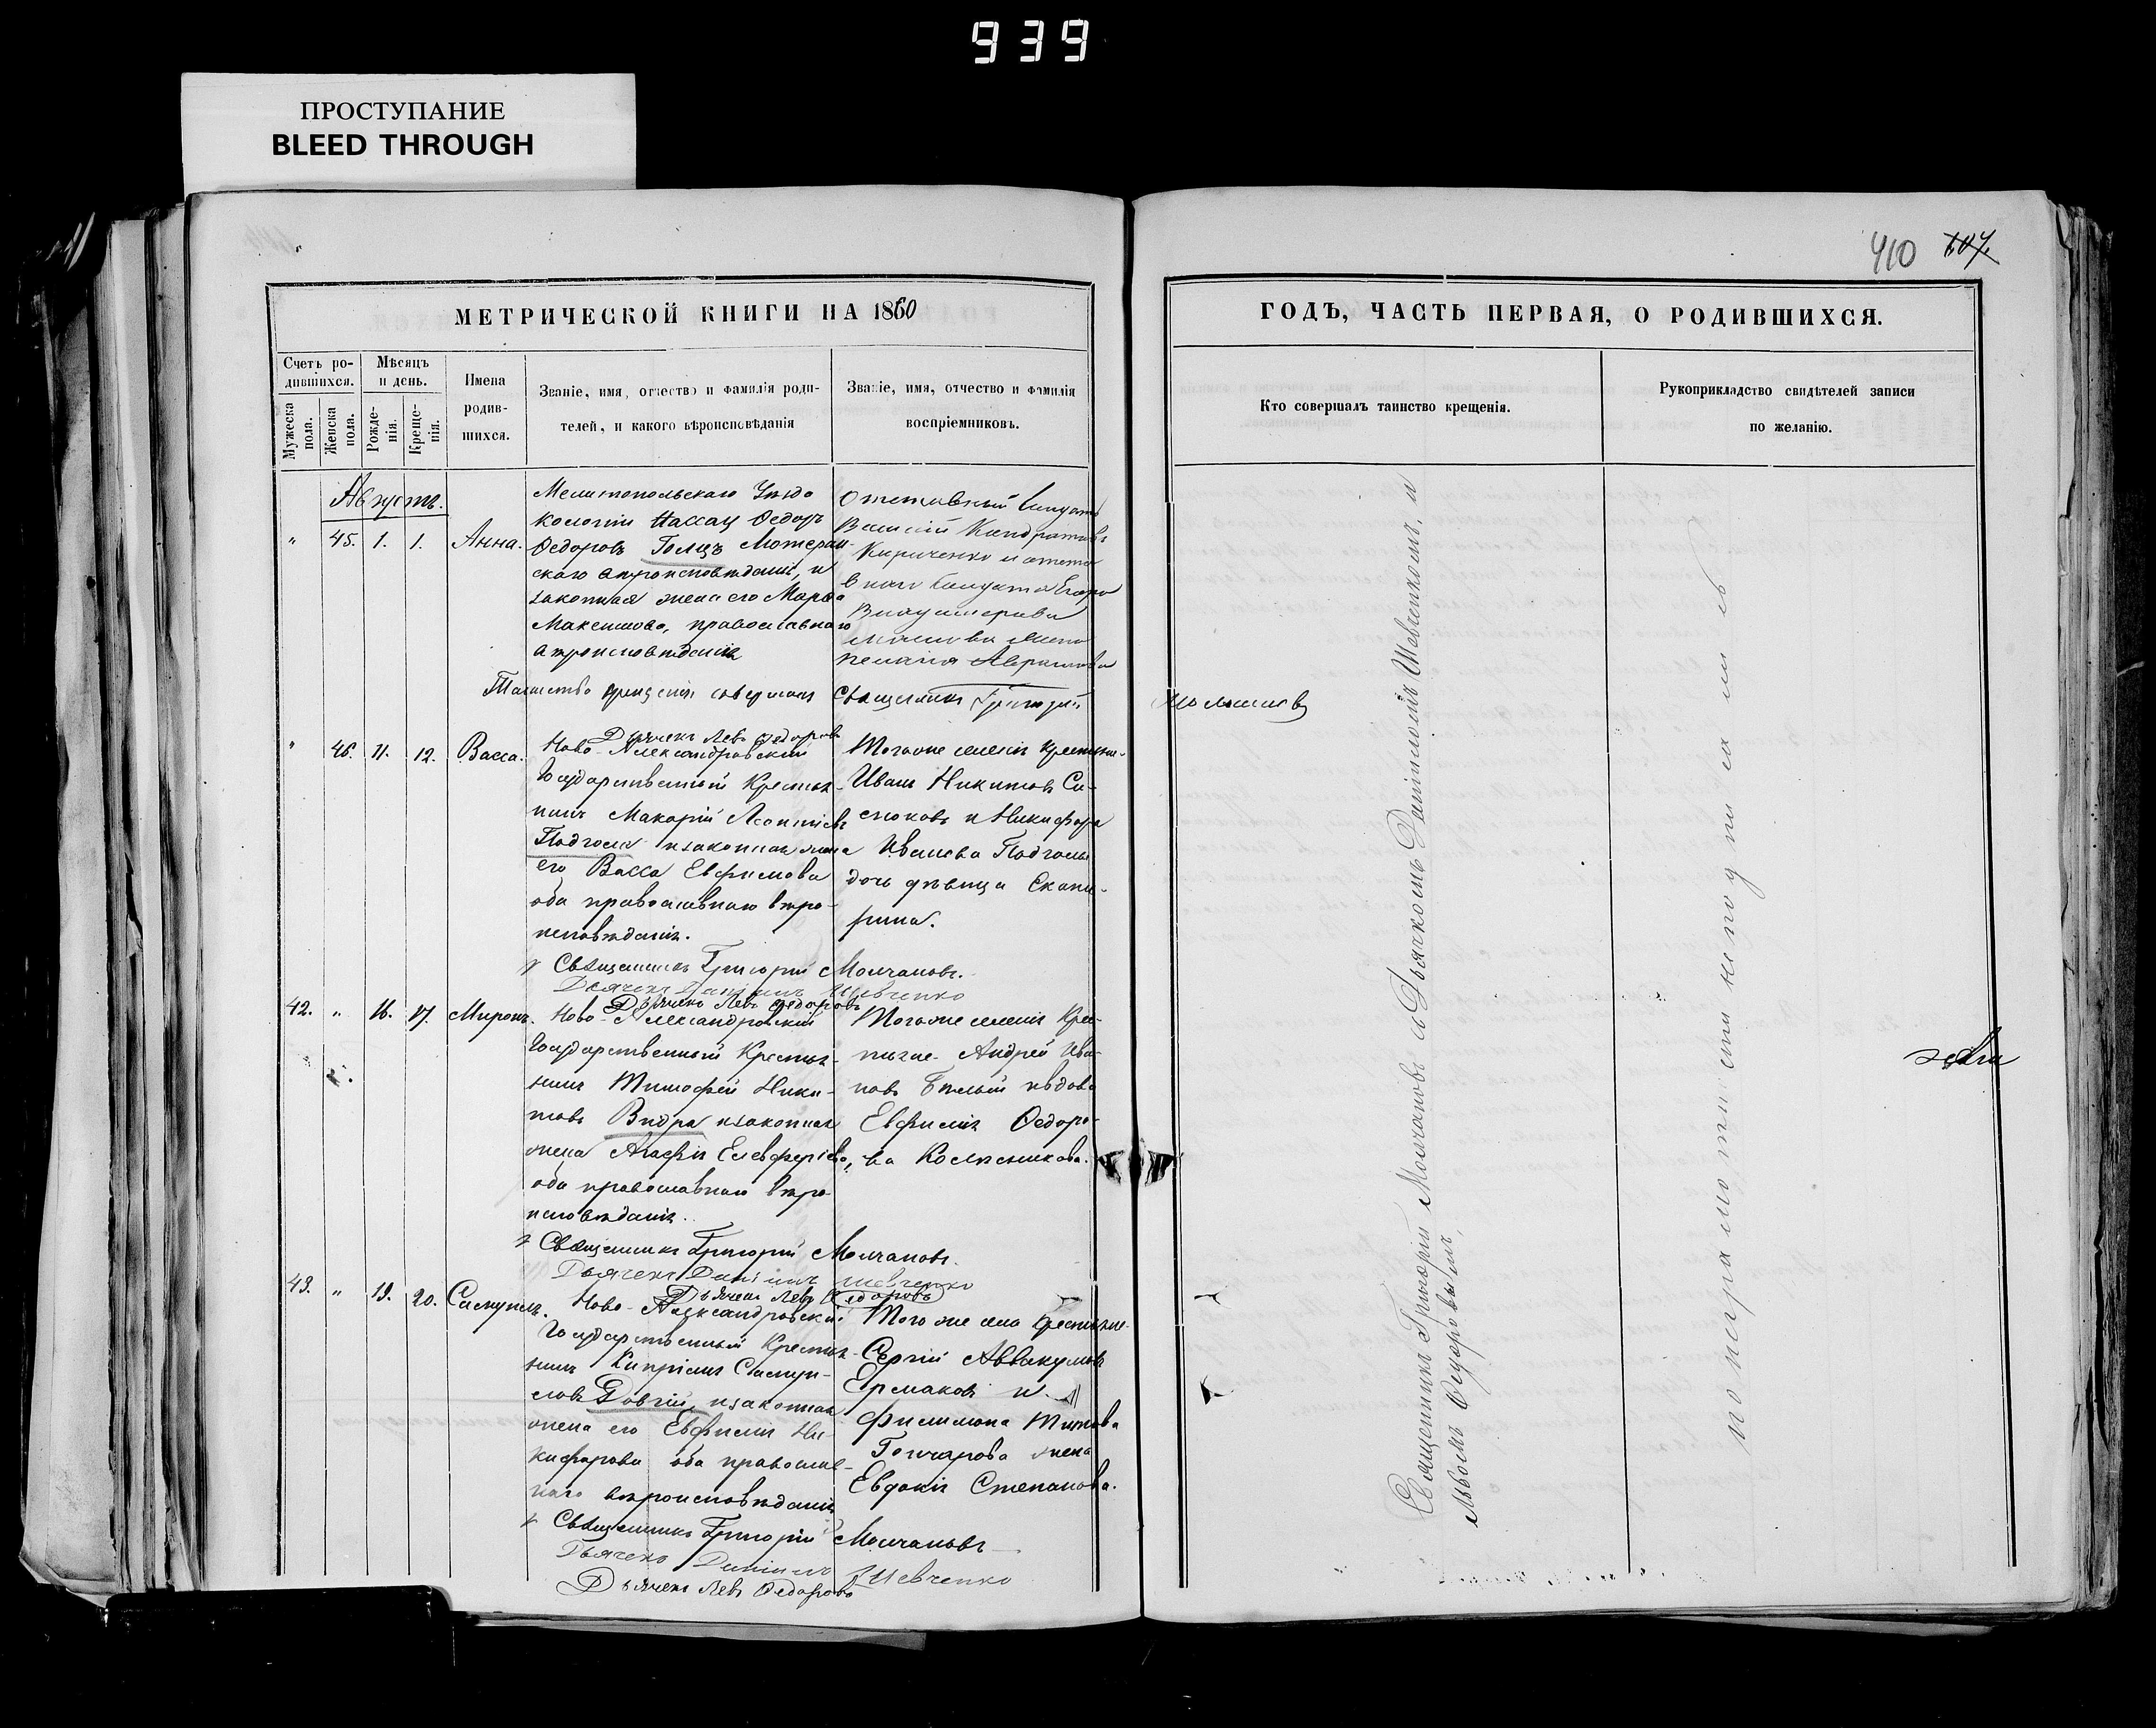 939
ПРОСТУПАНИЕ
BLEED THROUGH
410 107
МЕТРИЧЕСКОЙ КНИГИ НА 1860
ГОДЪ, ЧАСТЬ ПЕРВАЯ, О РОДИВШИХСЯ.
Счетъ ро-
дившихся.
Мужеска пола.
Женска пола.
Мѣсяцъ
и день.
Рожде-
нія.
Креще-
нія.
Имена
родив-
шихся.
Званіе, имя, отчество и фамилія роди-
телей, и какого вѣроисповѣданія
Званіе, имя, отчество и фамилія
воспріемниковъ.
Кто совершалъ таинство крещенія.
Рукоприкладство свидѣтелей записи
по желанію.
Августъ.
" 45. 1. 1. Анна.
Мелитопольскаго Уѣзда
колоніи Нассау Федоръ
Федоровъ Голцъ Лютеран-
скаго вѣроисповѣданія, и
законная жена его Марѳа
Максимова, православнаго
вѣроисповѣданія
Отставный Солдатъ
Василій Кондратовъ
Кириченко и отста
внаго Солдата Егора
жена
Пелагія Аврамова
Таинство крещенія совершалъ Священникъ Григорій
Молчановъ
Дьячекъ Левъ Федоровъ
" 46. 11. 12. Васса.
Ново-Александровскій
Государственный Крестья-
нинъ Макарій Леонтіевъ
Подгола и законная жена
его Васса Евфимова
оба православнаго вѣро-
исповѣданія.
Того же селенія крестьяне-
Иванъ Никитовъ Си-
соковъ и Никифора
Иванова Подголы
дочь дѣвица Екате-
рина.
Священникъ Григорій Молчановъ.
Дьячекъ Даніилъ Шевченко
Дьячекъ Левъ Федоровъ
42. " 16. 17. Миронъ.
Ново-Александровскій
Государственный Крестья-
нинъ Тимофей Ники-
товъ Видра и законная
жена Агафія Елевферіева,
оба православнаго вѣро-
исповѣданія.
Того же селенія Крес-
тьяне- Андрей Ива-
новъ Бѣлый и вдова
Евфимія Федоро-
ва Колесникова.
Священникъ Григорій Молчановъ.
Дьячекъ Даніилъ Шевченко
Дьячекъ Левъ Федоровъ
43. " 19. 20. Самуилъ.
Ново-Александровскій
Государственный Крестья-
нинъ Кипріянъ Самуи-
ловъ Довгій, и законная
жена его Евфимія Ни-
кифорова оба православ-
наго вѣроисповѣданія
Того же села Крестьяне-
Сергій Аввакумовъ
Ермаковъ и
Филимона Титова
Гончарова жена
Евдокія Степанова.
Священникъ Григорій Молчановъ
Дьячекъ Даніилъ Шевченко
Дьячекъ Левъ Федоровъ
Священникъ Григорій Молчановъ съ Дьячкомъ Даніиломъ Шевченкомъ, и
Львомъ Федоровымъ,